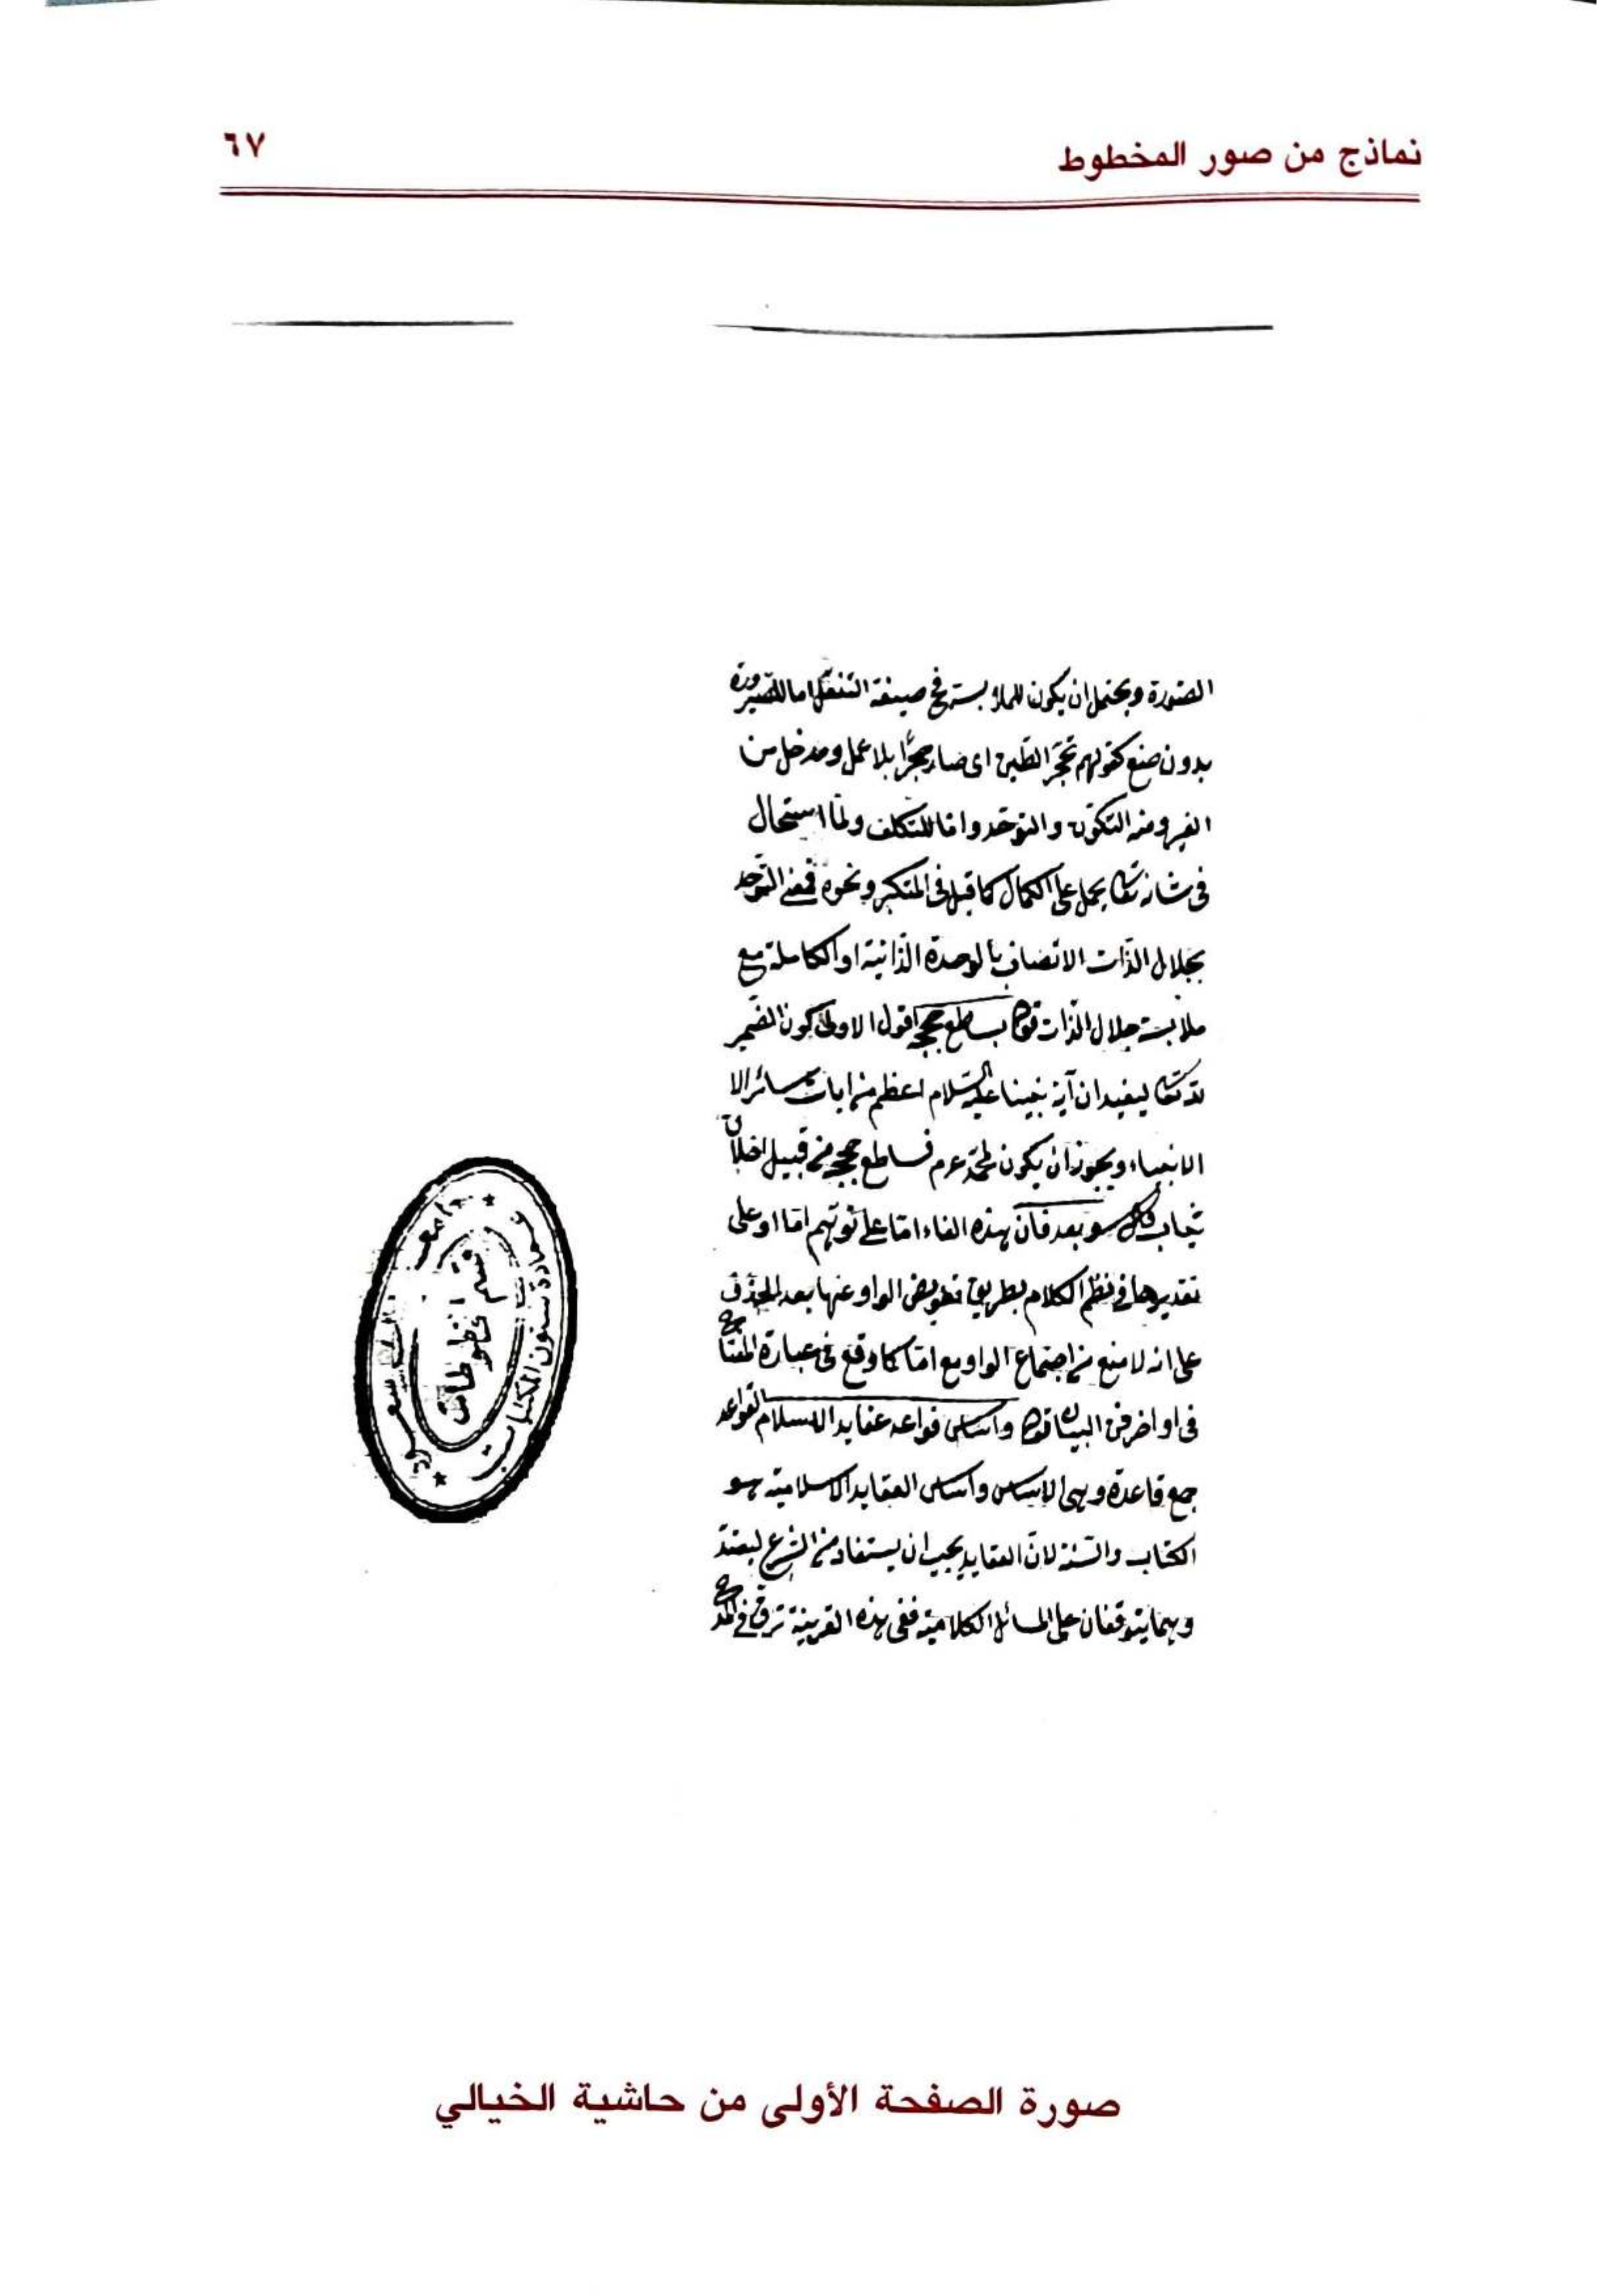 نماذج من صور المخطوط
٦٧
الصورة ويحتمل ان يكون للملابسة فح صيغة التفعل اما للصيرورة
بدون صنع كقولهم تحجر الطين اى صار حجرا بلا عمل ومدخل من
الغير ومنه التكون والتوحد واما للتكلف ولما استحال
فى شانه تعا يحمل على الكمال كما قيل فى المتكبر ونحوه فمعنى التوحد
بجلال الذات الاتصاف بالوحدة الذاتية او الكاملة مع
ملابسة جلال الذات قوله بساطع حججه اقول الاولى كون الضمير
لله تعا ليفيد ان آية نبينا عليه السلام اعظم من ايات سائر الا
الانبياء ويجوز ان يكون لمحمد عرم فساطع حججه من قبيل اخلاق
ثياب قوله وبعد فان هذه الفاء اما على توهم اما او على
تقديرها فى نظم الكلام بطريق تعويض الواو عنها بعد الحذف
على انه لا منع من اجتماع الواو مع اما كما وقع فى عبارة المفتاح
فى اواخر فن البيان قوله واساس قواعد عقايد الاسلام القواعد
جمع قاعدة وهى الاساس واساس العقايد الاسلامية هو
الكتاب والسنة لان العقايد يجب ان يستفاد من الشرع ليعتد
وهما يتوقفان على المسائل الكلامية ففى هذه القرينة ترق فى المدح
جامعة
سعود
عمادة شئون المكتبات
قسم المخطوطات
صورة الصفحة الأولى من حاشية الخيالي